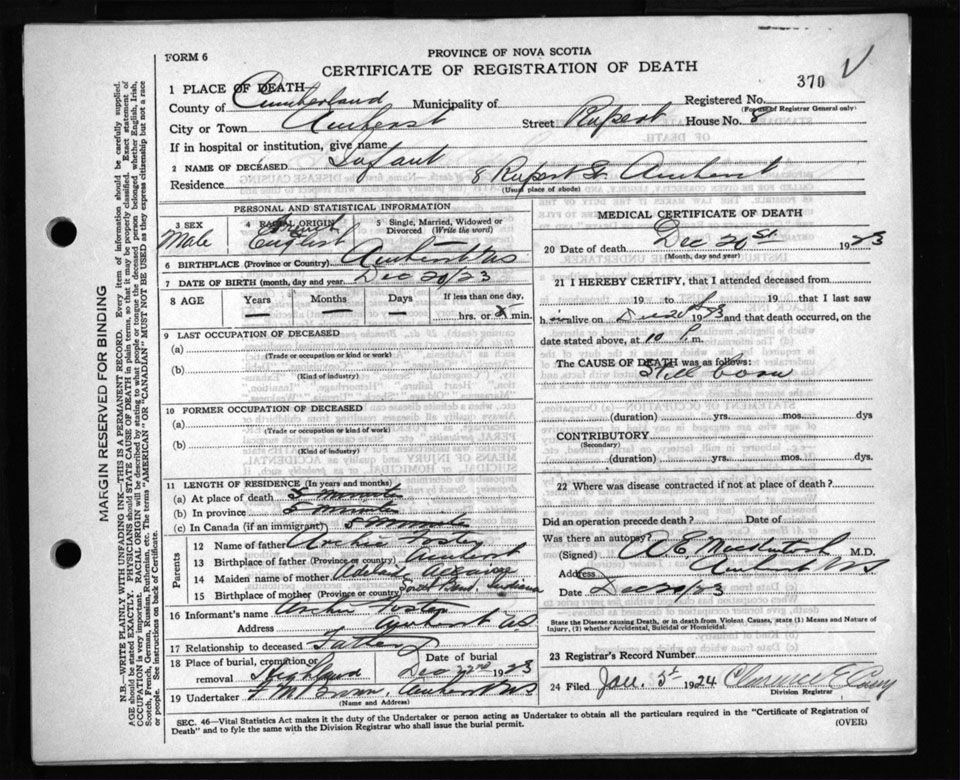 PROVINCE OF NOVA SCOTIA
FORM 6
CERTIFICATE OF REGISTRATION OF DEATH
370 V
1 PLACE OF DEATH
County of Cumberland Municipality of Registered No.
(For use of Registrar General only)
City or Town Amherst Street Rupert House No. 8
If in hospital or institution, give name
2 NAME OF DECEASED Infant
Residence 8 Rupert St. Amherst
(Usual place of abode)
PERSONAL AND STATISTICAL INFORMATION
3 SEX Male
4 RACIAL ORIGIN French English
5 Single, Married, Widowed or Divorced (Write the word)
6 BIRTHPLACE (Province or Country) Amherst NS
7 DATE OF BIRTH (month, day and year) Dec 20/23
8 AGE Years Months Days If less than one day,
— — — hrs. or 5 min.
9 LAST OCCUPATION OF DECEASED
(a)
(Trade or occupation or kind or work)
(b)
(Kind of industry)
10 FORMER OCCUPATION OF DECEASED
(a)
(Trade or occupation or kind or work)
(b)
(Kind of industry)
11 LENGTH OF RESIDENCE (In years and months)
(a) At place of death 5 Minutes
(b) In province 5 Minutes
(c) In Canada (if an immigrant) 5 Minutes
Parents
12 Name of father Archie
13 Birthplace of father (Province or country) Amherst
14 Maiden name of mother
15 Birthplace of mother (Province or country) Bend. Indiana
16 Informant's name Archie
Address Amherst NS
17 Relationship to deceased Father
18 Place of burial, cremation or removal Highland
Date of burial Dec 22nd 1923
19 Undertaker Amherst NS
(Name and Address)
MEDICAL CERTIFICATE OF DEATH
20 Date of death Dec 20st 1923
(Month, day and year)
21 I HEREBY CERTIFY, that I attended deceased from
19 to 19 that I last saw
h alive on Dec 20 1923 and that death occurred, on the
date stated above, at 10 P.m.
The CAUSE OF DEATH was as follows:
Still born
(duration) yrs. mos. dys
CONTRIBUTORY
(Secondary)
(duration) yrs. mos. dys
22 Where was disease contracted if not at place of death?
Did an operation precede death? Date of
Was there an autopsy?
(Signed) A E MacKintosh M.D.
Address Amherst NS
Date Dec 20/23
State the Disease causing Death, or in death from Violent Causes, state (1) Means and Nature of Injury, (2) whether Accidental, Suicidal or Homicidal.
23 Registrar's Record Number
24 Filed Jan. 5th 1924 Clarence E
Division Registrar
SEC. 46—Vital Statistics Act makes it the duty of the Undertaker or person acting as Undertaker to obtain all the particulars required in the "Certificate of Registration of
Death" and to fyle the same with the Division Registrar who shall issue the burial permit.
(OVER)
MARGIN RESERVED FOR BINDING
N.B.—WRITE PLAINLY WITH UNFADING INK—THIS IS A PERMANENT RECORD. Every item of information should be carefully supplied.
AGE should be stated EXACTLY. PHYSICIANS should STATE CAUSE OF DEATH in plain terms, that it may be properly classified. Exact statement of
OCCUPATION is very important. RACIAL ORIGIN will be described by stating to what people or tongue the deceased person belonged whether English, Irish,
Scotch, French, German, Russian, Ruthenian, etc. The terms "AMERICAN" OR "CANADIAN" MUST NOT BE USED as they express citizenship but not a race
or people. See instructions on back of Certificate.